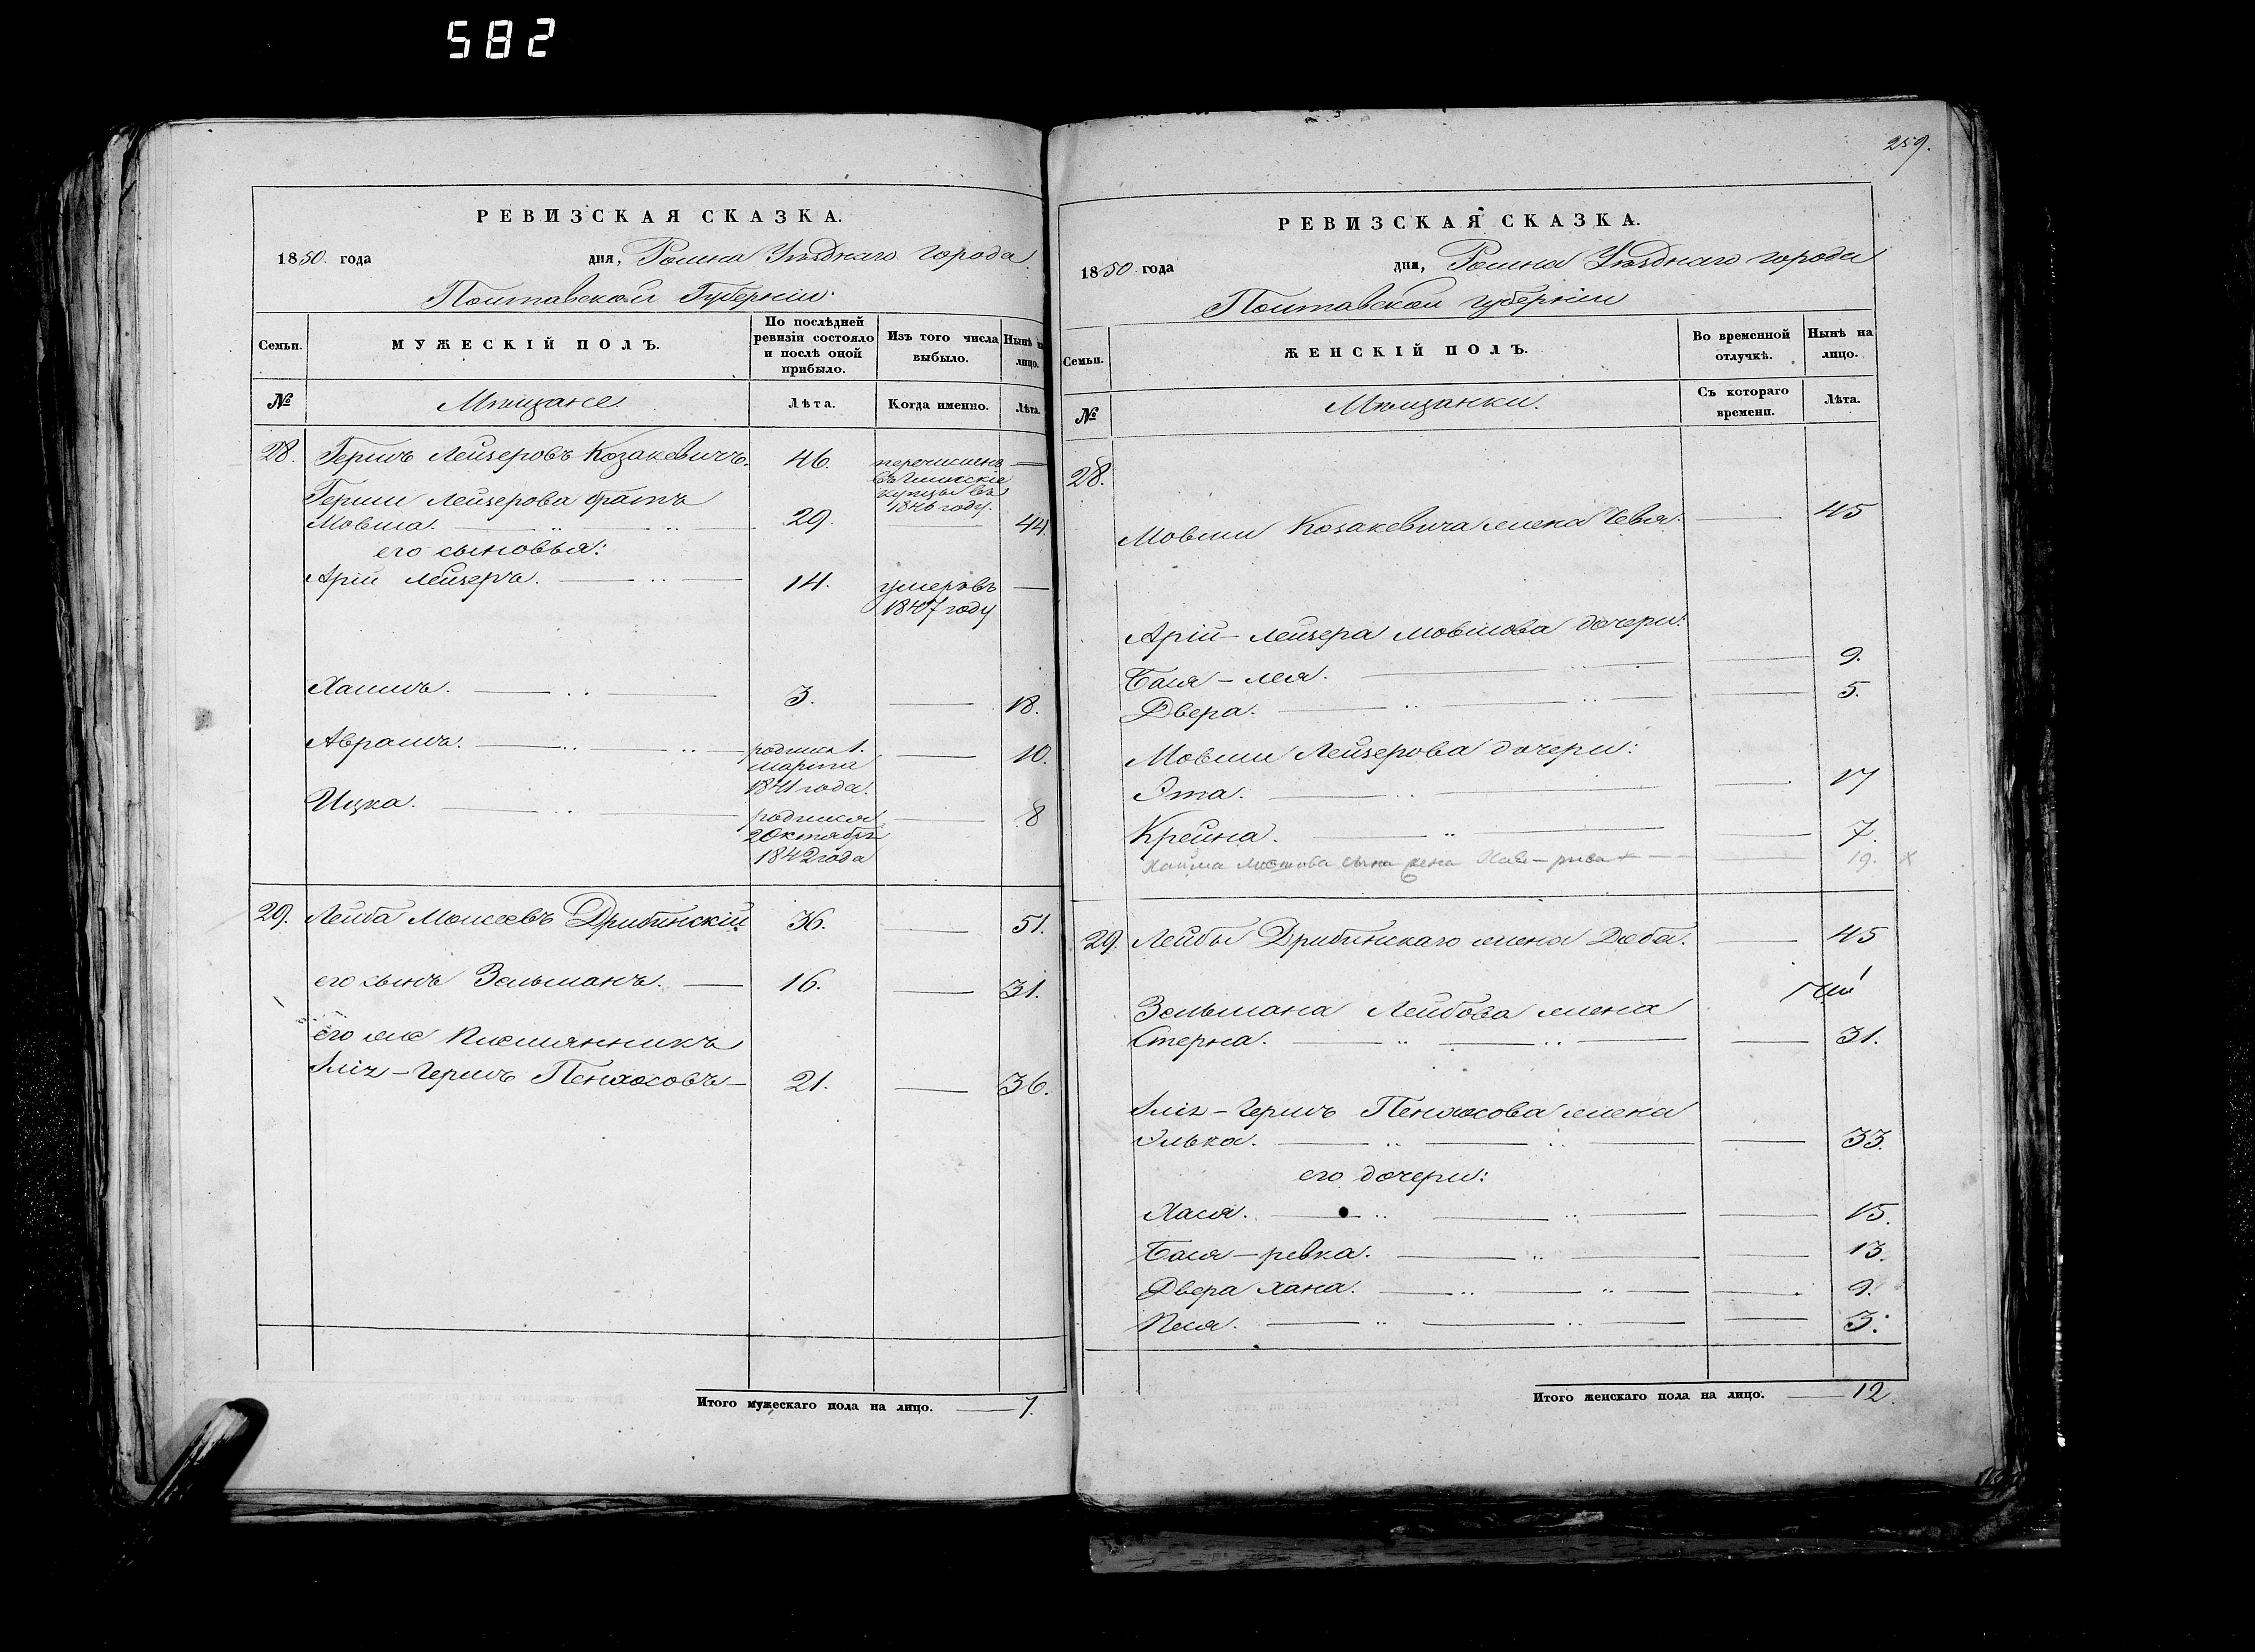 582
РЕВИЗСКАЯ СКАЗКА.
1850 года дня, Ромна Уѣзднаго города
Полтавской Губерніи.
Семьи.
МУЖЕСКІЙ ПОЛЪ.
По послѣдней ревизіи состояло и послѣ оной прибыло.
Изъ того числа выбыло.
Нынѣ на лицо.
№
Мѣщане.
Лѣта.
Когда именно.
Лѣта.
28. Гершъ Лейзеровъ Козакевичъ. 46. перечисленъ —
въ купцы въ
1846 году.
Герши Лейзерова братъ
Мовша. 29. — 44.
его сыновья:
Арій Лейзеръ. 14. умеръ въ —
1847 году
Хаимъ. 3. — 18.
Абрамъ. родился 1. — 10.
марта
1841 года.
Ицка. родился — 8
2 октября
1842 года
29. Лейба Моисеевъ Дрибинскій. 36. — 51.
его сынъ Зельманъ. — 16. — 31.
его же племянникъ
Гершъ Пенхосовъ — 21. — 36.
Итого мужескаго пола на лицо. — 7.
259.
РЕВИЗСКАЯ СКАЗКА.
1850 года дня, Ромна Уѣзднаго города
Полтавской губерніи
Семьи.
ЖЕНСКІЙ ПОЛЪ.
Во временной отлучкѣ.
Нынѣ на лицо.
№
Мѣщанки.
Съ котораго времени.
Лѣта.
28.
Мовши Козакевича жена — 45
Арій-Лейзера Мовшова дочери:
Бася-лея. — 9.
Двера. — 5.
Мовши Лейзерова дочери:
Эта. — 17
Крейна. — 7.
Хаима сына жена 19. x
29. Лейбы Дрибинскаго жена Доба. — 45
Зельмана Лейбова жена
Стерна. — 31.
Гершъ Пенхосова жена
Элька. — 33.
его дочери:
Хася. — 15.
Бася-ревка. — 13.
Двера хана. — 9.
Песя. — 3.
Итого женскаго пола на лицо. — 12.